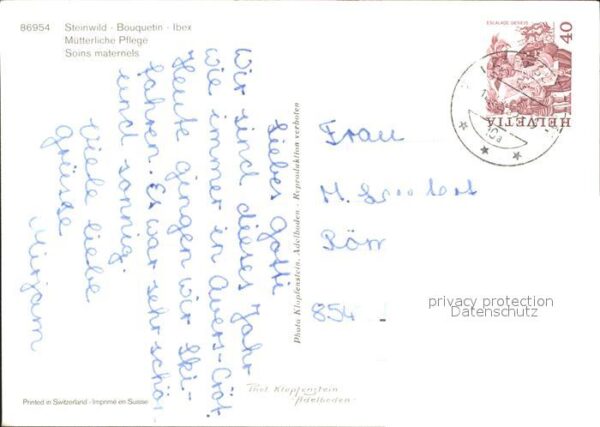 86954 Steinwild · Bouquetin · Ibex
Mütterliche Pflege
Soins maternels
Liebes Gotti
Wir sind dieses Jahr
wie immer in Avers-Cröt.
Heute gingen wir Ski-
fahren. Es war sehr schön
und sonnig.
Viele liebe
Grüsse
Mirjam
Photo Klopfenstein, Adelboden · Reproduktion verboten
ESCALADE GENÈVE
40
HELVETIA
Frau
M.
854
privacy protection
Datenschutz
Phot Klopfenstein
Adelboden
Printed in Switzerland - Imprimé en Suisse